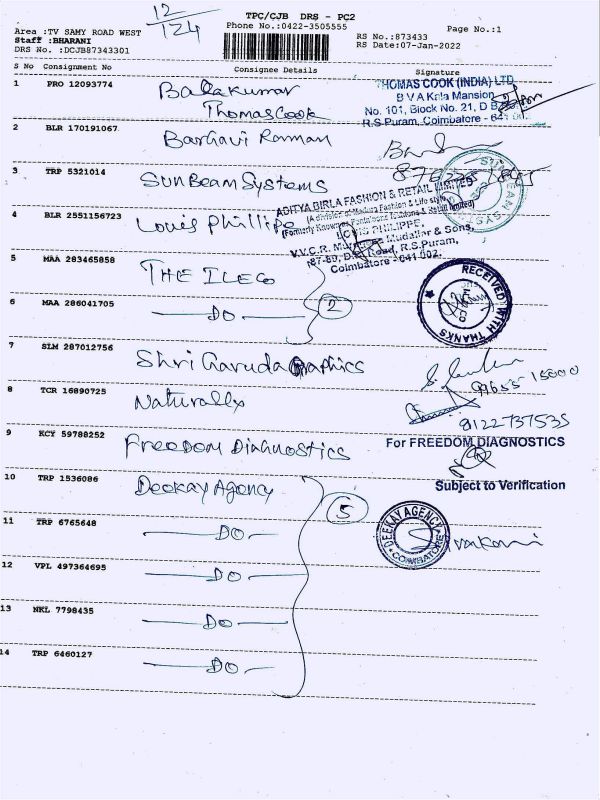 12/124
TPC/CJB DRS - PC2
Area :TV SAMY ROAD WEST Phone No.:0422-3505555 Page No.:1
Staff :BHARANI RS No.:873433
DRS No. :DCJB87343301 RS Date:07-Jan-2022
S No Consignment No Consignee Details Signature
1 PRO 12093774 Balakumar
Thomas Cook
THOMAS COOK (INDIA) LTD
B V A Kala Mansion
No. 101, Block No. 21, D B
R.S Puram, Coimbatore - 641
2 BLR 170191067 Barhavi Ramman
3 TRP 5321014 SunBeam Systems
4 BLR 2551156723 Louis Phillipe
ADITYA BIRLA FASHION & RETAIL LIMITED
(A division of Madura Fashion & Life style)
(Formerly Known as Pantaloons Fashions & Retail limited)
LOUIS PHILIPPE,
V.V.C.R. Mudallar & Sons,
87-89, Road, R.S.Puram,
Coimbatore - 641 002.
5 MAA 283465858 THE ILEGO
RECEIVED WITH THANKS
6 MAA 286041705 DO 2
7 SLM 287012756 Shri Garuda Graphics
99655 15000
8 TCR 16890725 Naturally
9122737535
9 KCY 59788252 Freedom Diagnostics
For FREEDOM DIAGNOSTICS
Subject to Verification
10 TRP 1536086 Deekay Agency 5
DEEKAY AGENCY
COIMBATORE
11 TRP 6765648 DO
12 VPL 497364695 DO
13 NKL 7798435 DO
14 TRP 6460127 DO